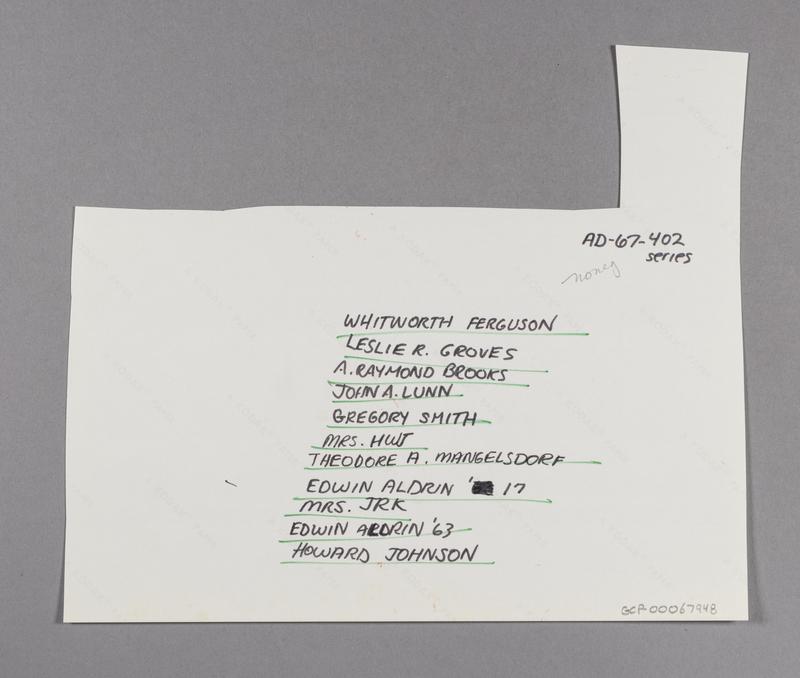 AD-67-402
series
noneg
WHITWORTH FERGUSON
LESLIE R. GROVES
A. RAYMOND BROOKS
JOHN A. LUNN
GREGORY SMITH
MRS. HWJ
THEODORE A. MANGELSDORF
EDWIN ALDRIN ' 17
MRS. JRK
EDWIN ALDRIN '63
HOWARD JOHNSON
GCP-00067948